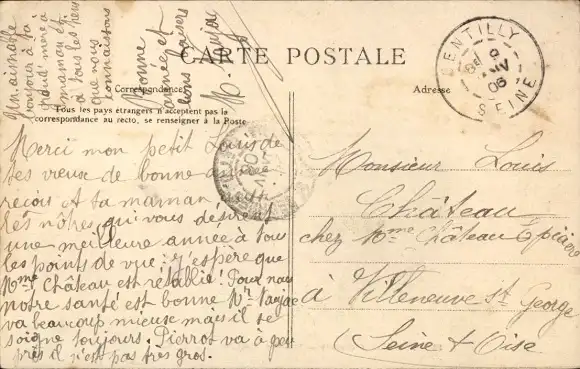 CARTE POSTALE
Correspondance
Adresse
Tous les pays étrangers n'acceptent pas la
correspondance au recto, se renseigner à la Poste
GENTILLY
SEINE
06
Merci mon petit Louis de
tes vœux de bonne an
reçois et ta maman
les nôtres, qui vous désirent
une meilleure année à tous
les points de vue; j'espère que
Mme Château est rétablie! Pour nous
notre santé est bonne Mr
va beaucoup mieuse mais il se
soigne toujours. Pierrot va à peu
près il n'est pas très gros.
Un aimable
bonjour à ta
grand mère à
maman et
à tous les gens
que nous
connaissons
Bonne
année et
bons baisers
Monsieur Louis
Château
chez Mme Château Epicière
à Villeneuve St George
(Seine & Oise